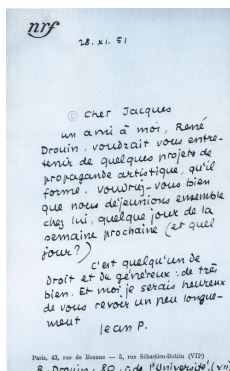 nrf
28. XI. 51
cher Jacques
un ami à moi, René
Drouin, voudrait vous entre-
tenir de quelques projets de
propagande artistique, qu'il
forme. Voudriez-vous bien
que nous déjeunions ensemble
chez lui, quelque jour de la
semaine prochaine (et quel
jour?)
C'est quelqu'un de
droit et de généreux : de très
bien. Et moi je serais heureux
de vous revoir un peu longue-
ment
Jean P.
Paris, 43, rue de Beaune — 5, rue Sébastien-Bottin (VIIe)
R. Drouin : 80, de l'Université (VII